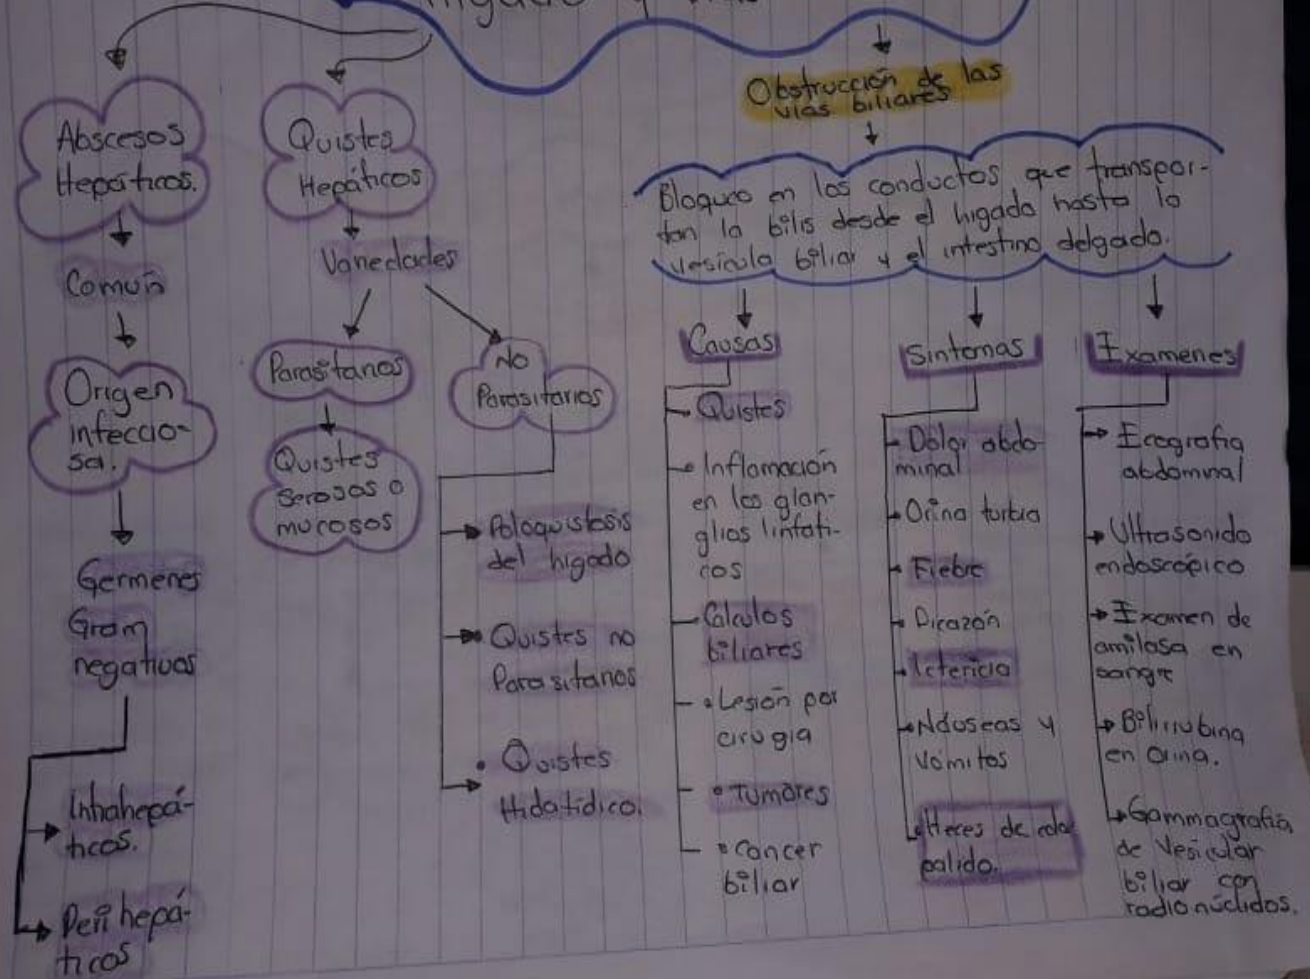 Obstrucción de las
vías biliares
Abscesos
Hepáticos.
Común
Origen
infeccio-
sa.
Germenes
Gram
negativos
Intrahepá-
ticos.
Peri hepá-
ticos
Quistes
Hepáticos
Variedades
Parasitarios
Quistes
serosos o
mucosos
No
Parasitarios
Poloquistosis
del higado
Quistes no
Parasitarios
Quistes
Hidatidico.
Bloqueo en los conductos que transpor-
tan la bilis desde el higado hasta la
vesicula biliar y el intestino delgado.
Causas
Quistes
Inflamación
en los glan-
glios linfati-
cos
Calculos
biliares
Lesión por
cirugia
Tumores
Cancer
biliar
Sintomas
Dolor abdo-
minal
Orina turbia
Fiebre
Picazón
Ictericia
Náuseas y
Vómitos
Heces de color
palido.
Examenes
Ecografia
abdominal
Ultrasonido
endoscópico
Examen de
amilasa en
sangre
Bilirrubina
en Orina.
Gammagrafia
de Vesicular
biliar con
radio núclidos.